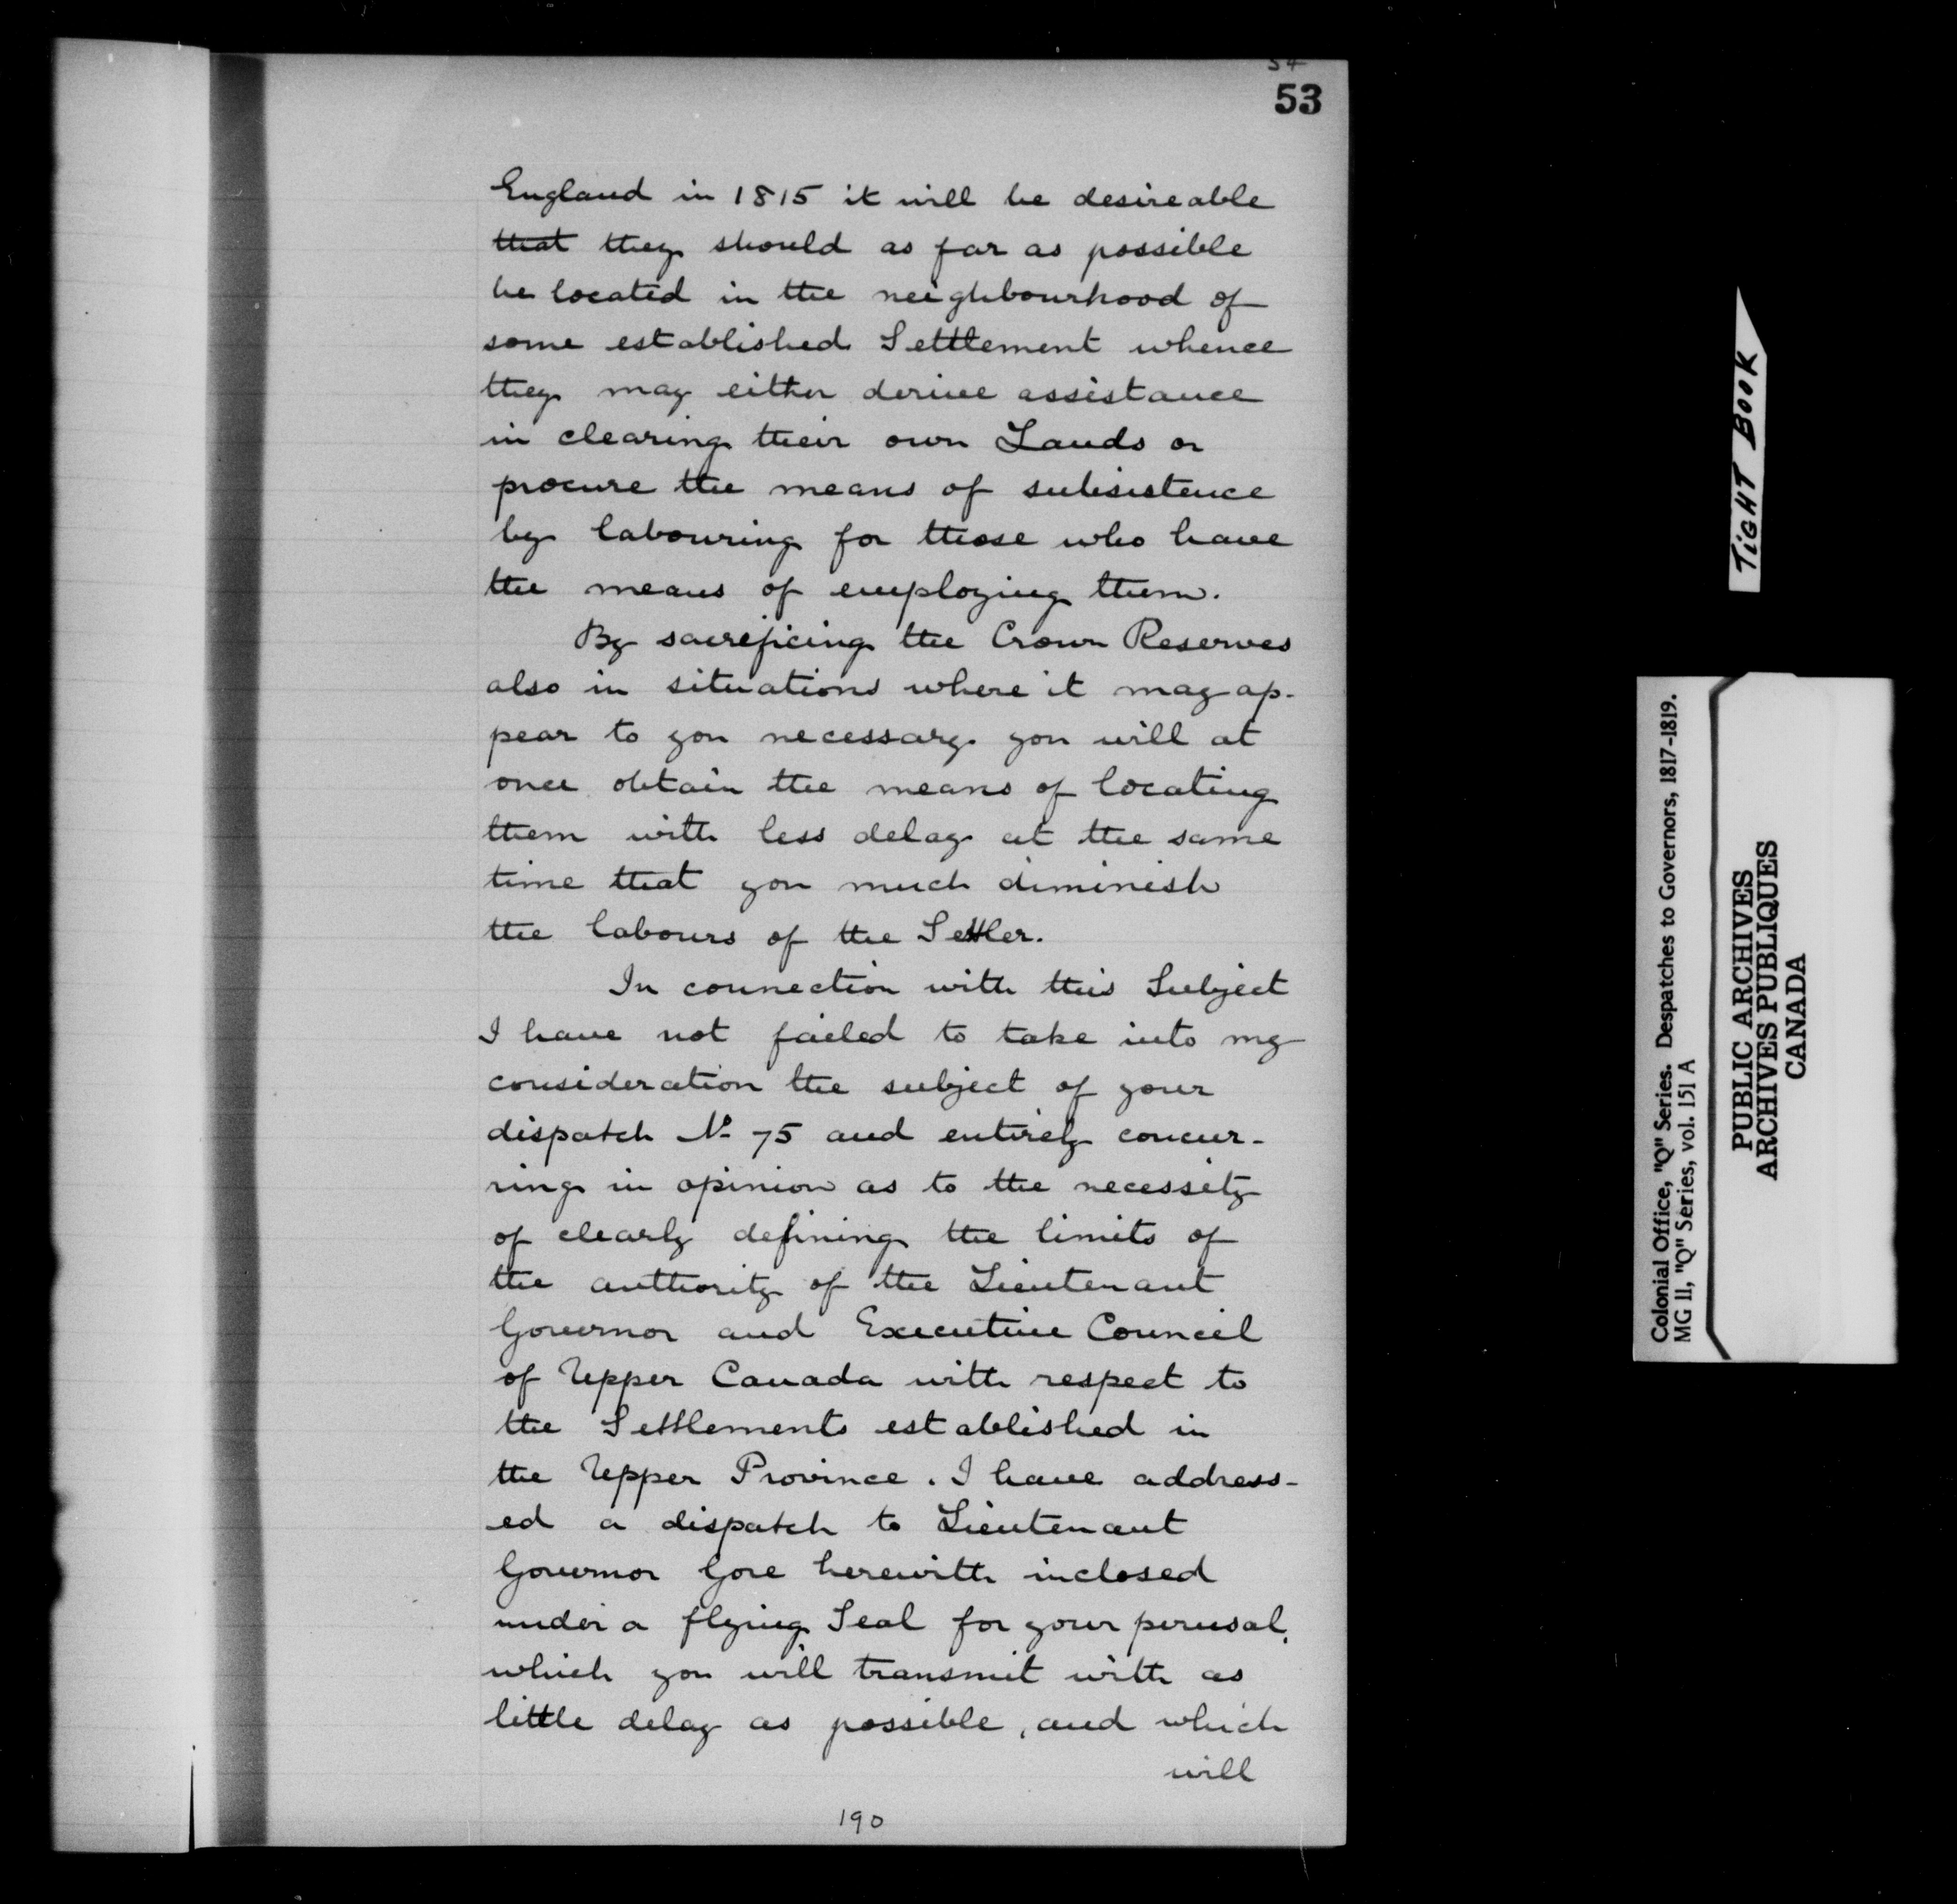 54
53
England in 1815 it will be desireable
that they should as far as possible
be located in the neighbourhood of
some established Settlement whence
they may either derive assistance
in clearing their own Lands or
procure the means of subsistence
by labouring for those who have
the means of employing them.
By sacreficing the Crown Reserves
also in situations where it may ap-
pear to you necessary you will at
once obtain the means of locating
them with less delay at the same
time that you much diminish
the labours of the Settler.
In connection with this Subject
I have not failed to take into my
consideration the subject of your
dispatch No 75 and entirely concur-
ring in opinion as to the necessity
of clearly defining the limits of
the authority of the Lieutenant
Governor and Executive Council
of Upper Canada with respect to
the Settlements established in
the Upper Province. I have address-
ed a dispatch to Lieutenant
Governor Gore herewith inclosed
under a flying Seal for your perusal,
which you will transmit with as
little delay as possible, and which
will
190
TIGHT BOOK
Colonial Office, "Q" Series. Despatches to Governors, 1817-1819.
MG 11, "Q" Series, vol. 151 A
PUBLIC ARCHIVES
ARCHIVES PUBLIQUES
CANADA